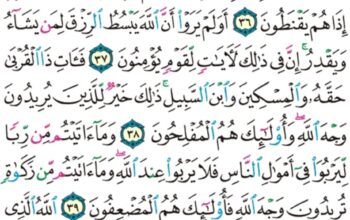 إِذَا هُمْ يَقْنَطُونَ ٣٦ أَوَلَمْ يَرَوْا أَنَّ اللَّهَ يَبْسُطُ الرِّزْقَ لِمَن يَشَاءُ
وَيَقْدِرُ إِنَّ فِي ذَٰلِكَ لَآيَاتٍ لِّقَوْمٍ يُؤْمِنُونَ ٣٧ فَآتِ ذَا الْقُرْبَىٰ
حَقَّهُ وَالْمِسْكِينَ وَابْنَ السَّبِيلِ ذَٰلِكَ خَيْرٌ لِّلَّذِينَ يُرِيدُونَ
وَجْهَ اللَّهِ وَأُولَٰئِكَ هُمُ الْمُفْلِحُونَ ٣٨ وَمَا آتَيْتُم مِّن رِّبًا
لِّيَرْبُوَ فِي أَمْوَالِ النَّاسِ فَلَا يَرْبُو عِندَ اللَّهِ وَمَا آتَيْتُم مِّن زَكَاةٍ
تُرِيدُونَ وَجْهَ اللَّهِ فَأُولَٰئِكَ هُمُ الْمُضْعِفُونَ ٣٩ اللَّهُ الَّذِي